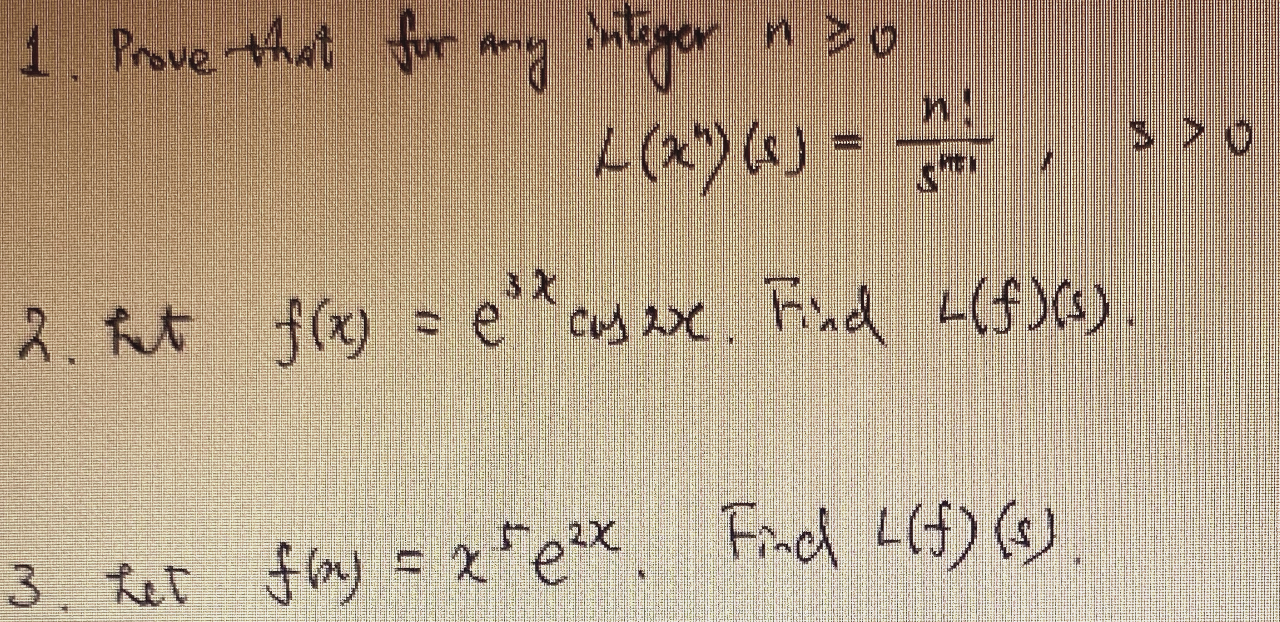 1. Prove that for any integer n ≥ 0
L(xⁿ)(s) = n!/sⁿ⁺¹ , s > 0
2. Let f(x) = e³ˣ cos 2x. Find L(f)(s).
3. Let f(x) = x⁵e²ˣ. Find L(f)(s).